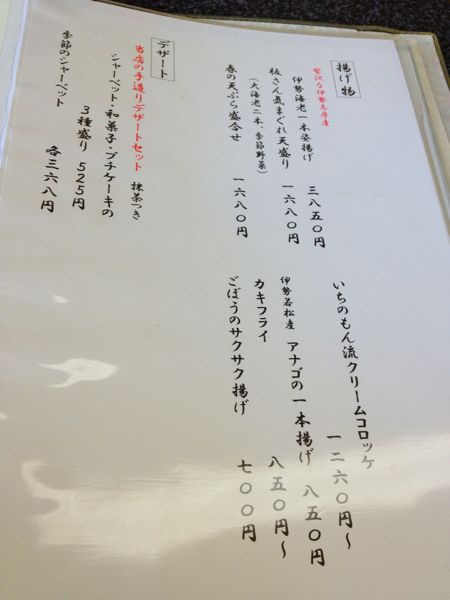 揚げ物
贅沢な伊勢志摩産
伊勢海老一本姿揚げ
三八五〇円
板さん気まぐれ天盛り
一六八〇円
（大海老二本、季節野菜）
春の天ぷら盛合せ
一六八〇円
いちのもん流クリームコロッケ
一二六〇円～
伊勢若松産 アナゴの一本揚げ
八五〇円
カキフライ
八五〇円～
ごぼうのサクサク揚げ
七〇〇円
デザート
当店の手造りデザートセット 抹茶つき
シャーベット・和菓子・プチケーキの
3種盛り 525円
季節のシャーベット
各三六八円